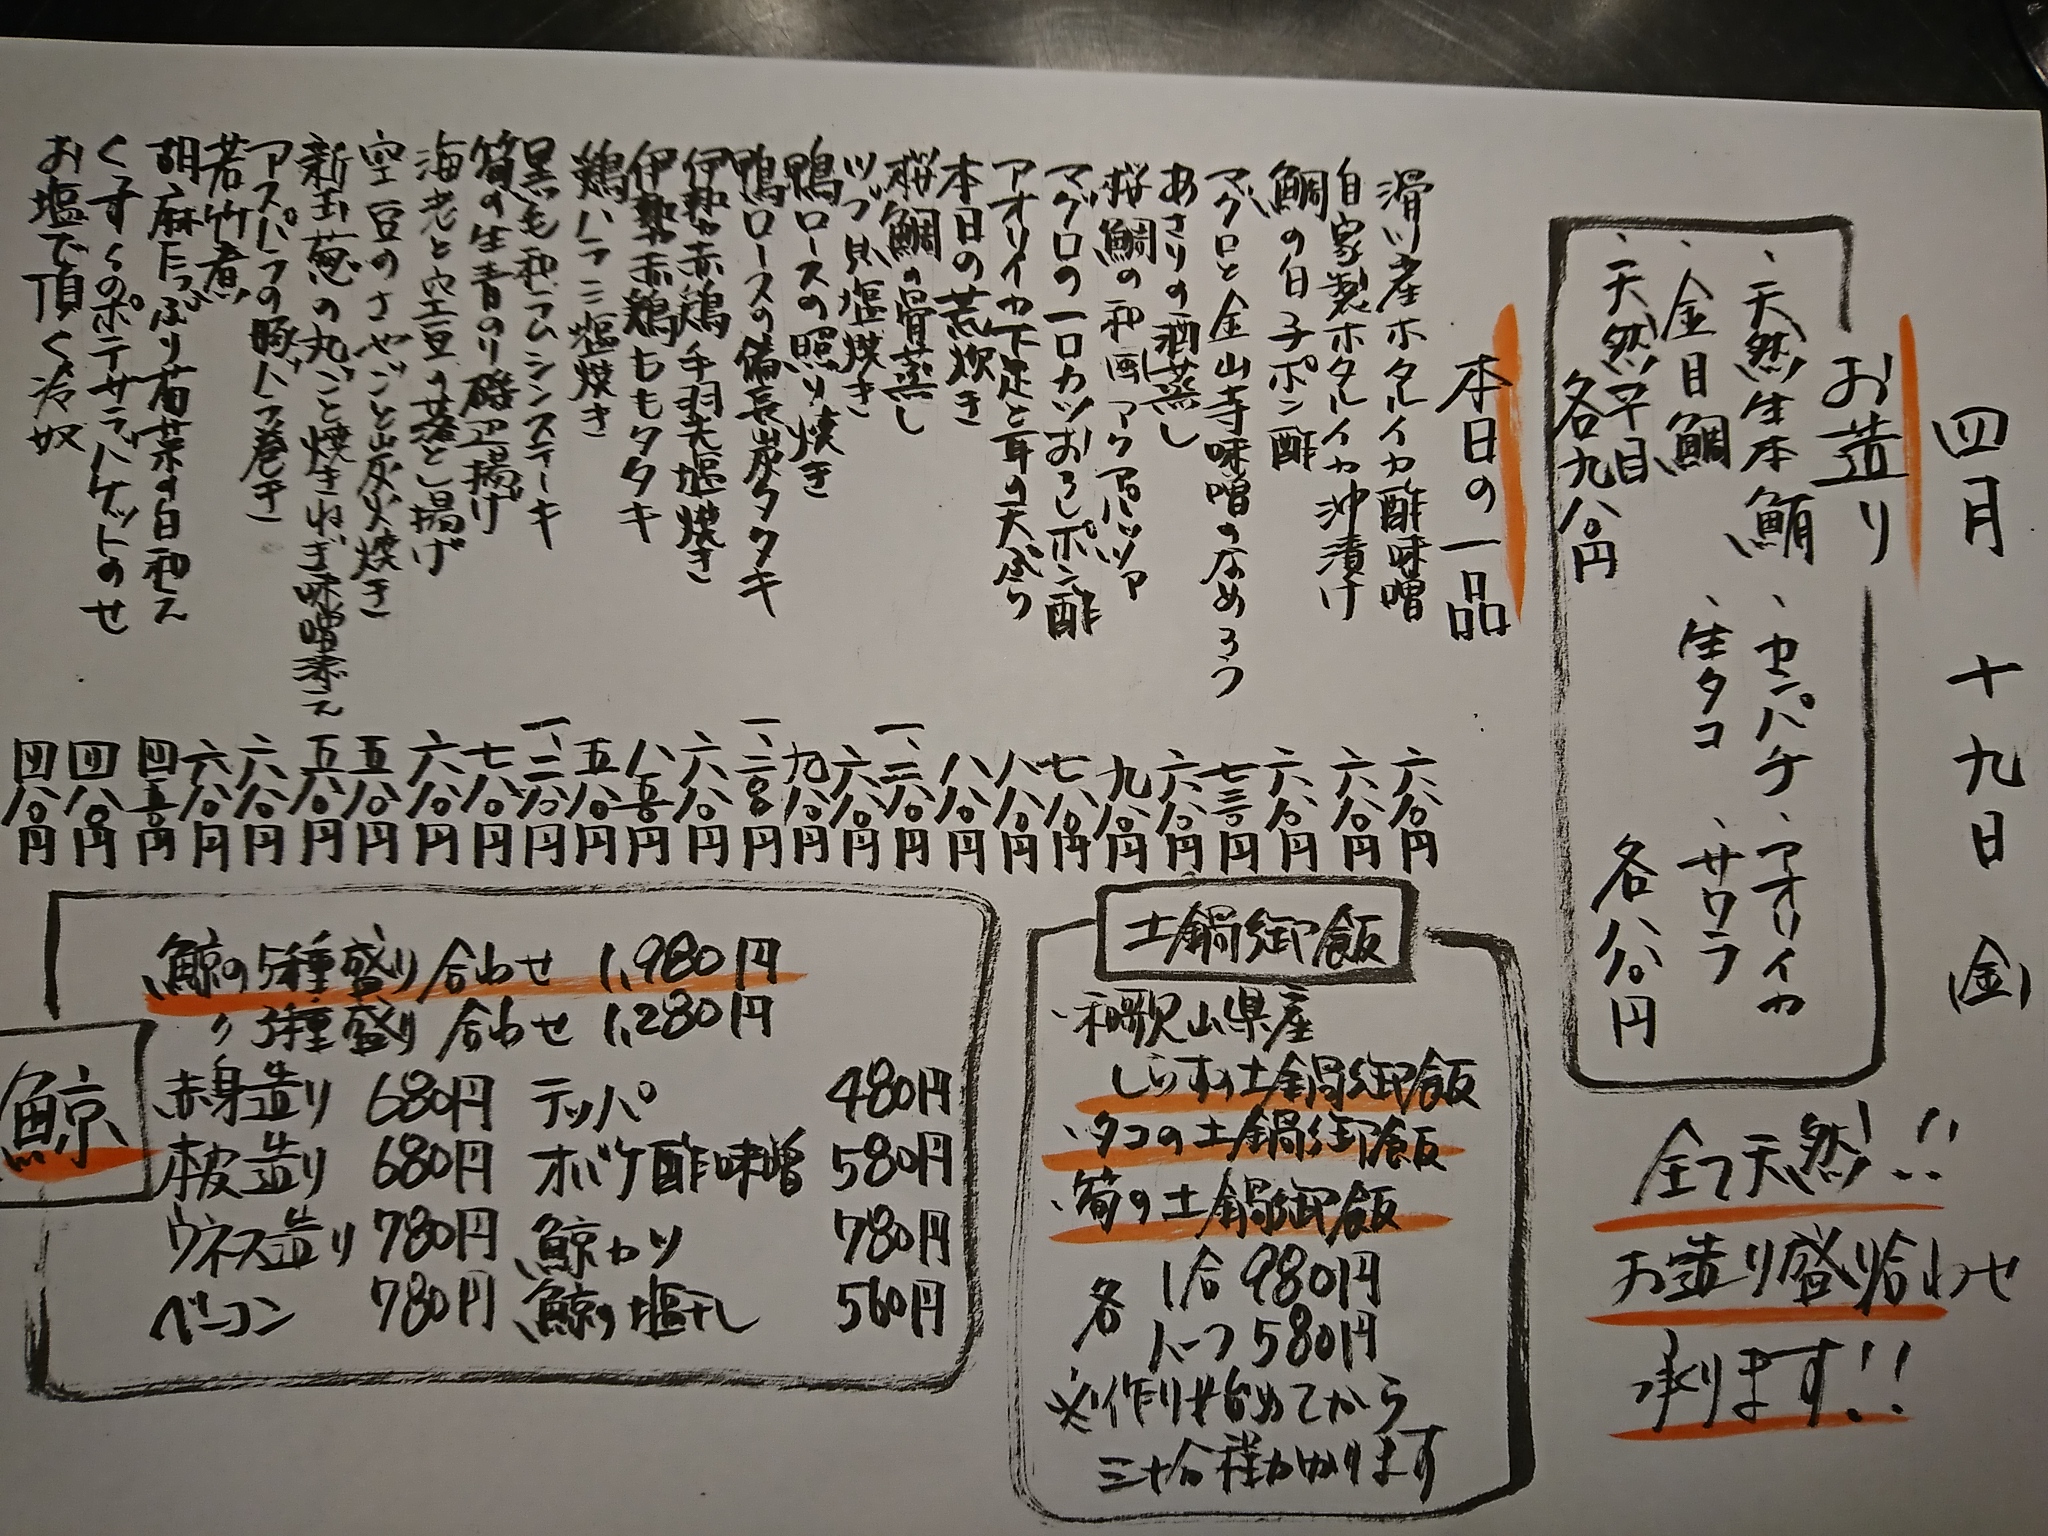 四月 十九日 (金)
お造り
、天然生本鮪 、カンパチ 、アオリイカ
、金目鯛 、生タコ 、サワラ
、天然平目
各九八〇円 各八八〇円
全て天然!!
お造り盛り合わせ
承ります!!
本日の一品
滑川産ホタルイカ酢味噌 六八〇円
自家製ホタルイカ沖漬け 六八〇円
鯛の白子ポン酢 六八〇円
マグロと金山寺味噌のなめろう 七三〇円
あさりの酒蒸し 六八〇円
桜鯛の和風アクアパッツァ 九八〇円
マグロの一口カツおろしポン酢 七八〇円
アオリイカ下足と耳の天ぷら 八八〇円
本日の荒炊き 八八〇円
桜鯛の骨蒸し 一、二八〇円
ツブ貝塩焼き 六八〇円
鴨ロースの照り焼き 九八〇円
鴨ロースの備長炭タタキ 一、二〇〇円
伊勢赤鶏手羽先塩焼き 六八〇円
伊勢赤鶏ももタタキ 八五〇円
鶏ハラミ塩焼き 五八〇円
黒毛和牛ムシンステーキ 一、二八〇円
筍の生青のり磯辺揚げ 七八〇円
海老と空豆の落とし揚げ 六八〇円
空豆のさやごと炭火焼き 五八〇円
新玉葱の丸ごと焼きねぎ味噌添え 五八〇円
アスパラの豚バラ巻き 六八〇円
若竹煮 六八〇円
胡麻たっぷり菊菜の白和え 四五〇円
くずしのポテサラバゲットのせ 四八〇円
お塩で頂く冷奴 四八〇円
土鍋御飯
・和歌山県産
しらすの土鍋御飯
・タコの土鍋御飯
・筍の土鍋御飯
各 1合 980円
ハーフ 580円
※作り始めてから
三十分程かかります
鯨
鯨の5種盛り合わせ 1,980円
〃 3種盛り合わせ 1,280円
赤身造り 680円 テッパ 480円
本皮造り 680円 オバケ酢味噌 580円
ウネス造り 780円 鯨カツ 780円
ベーコン 780円 鯨の塩干し 560円